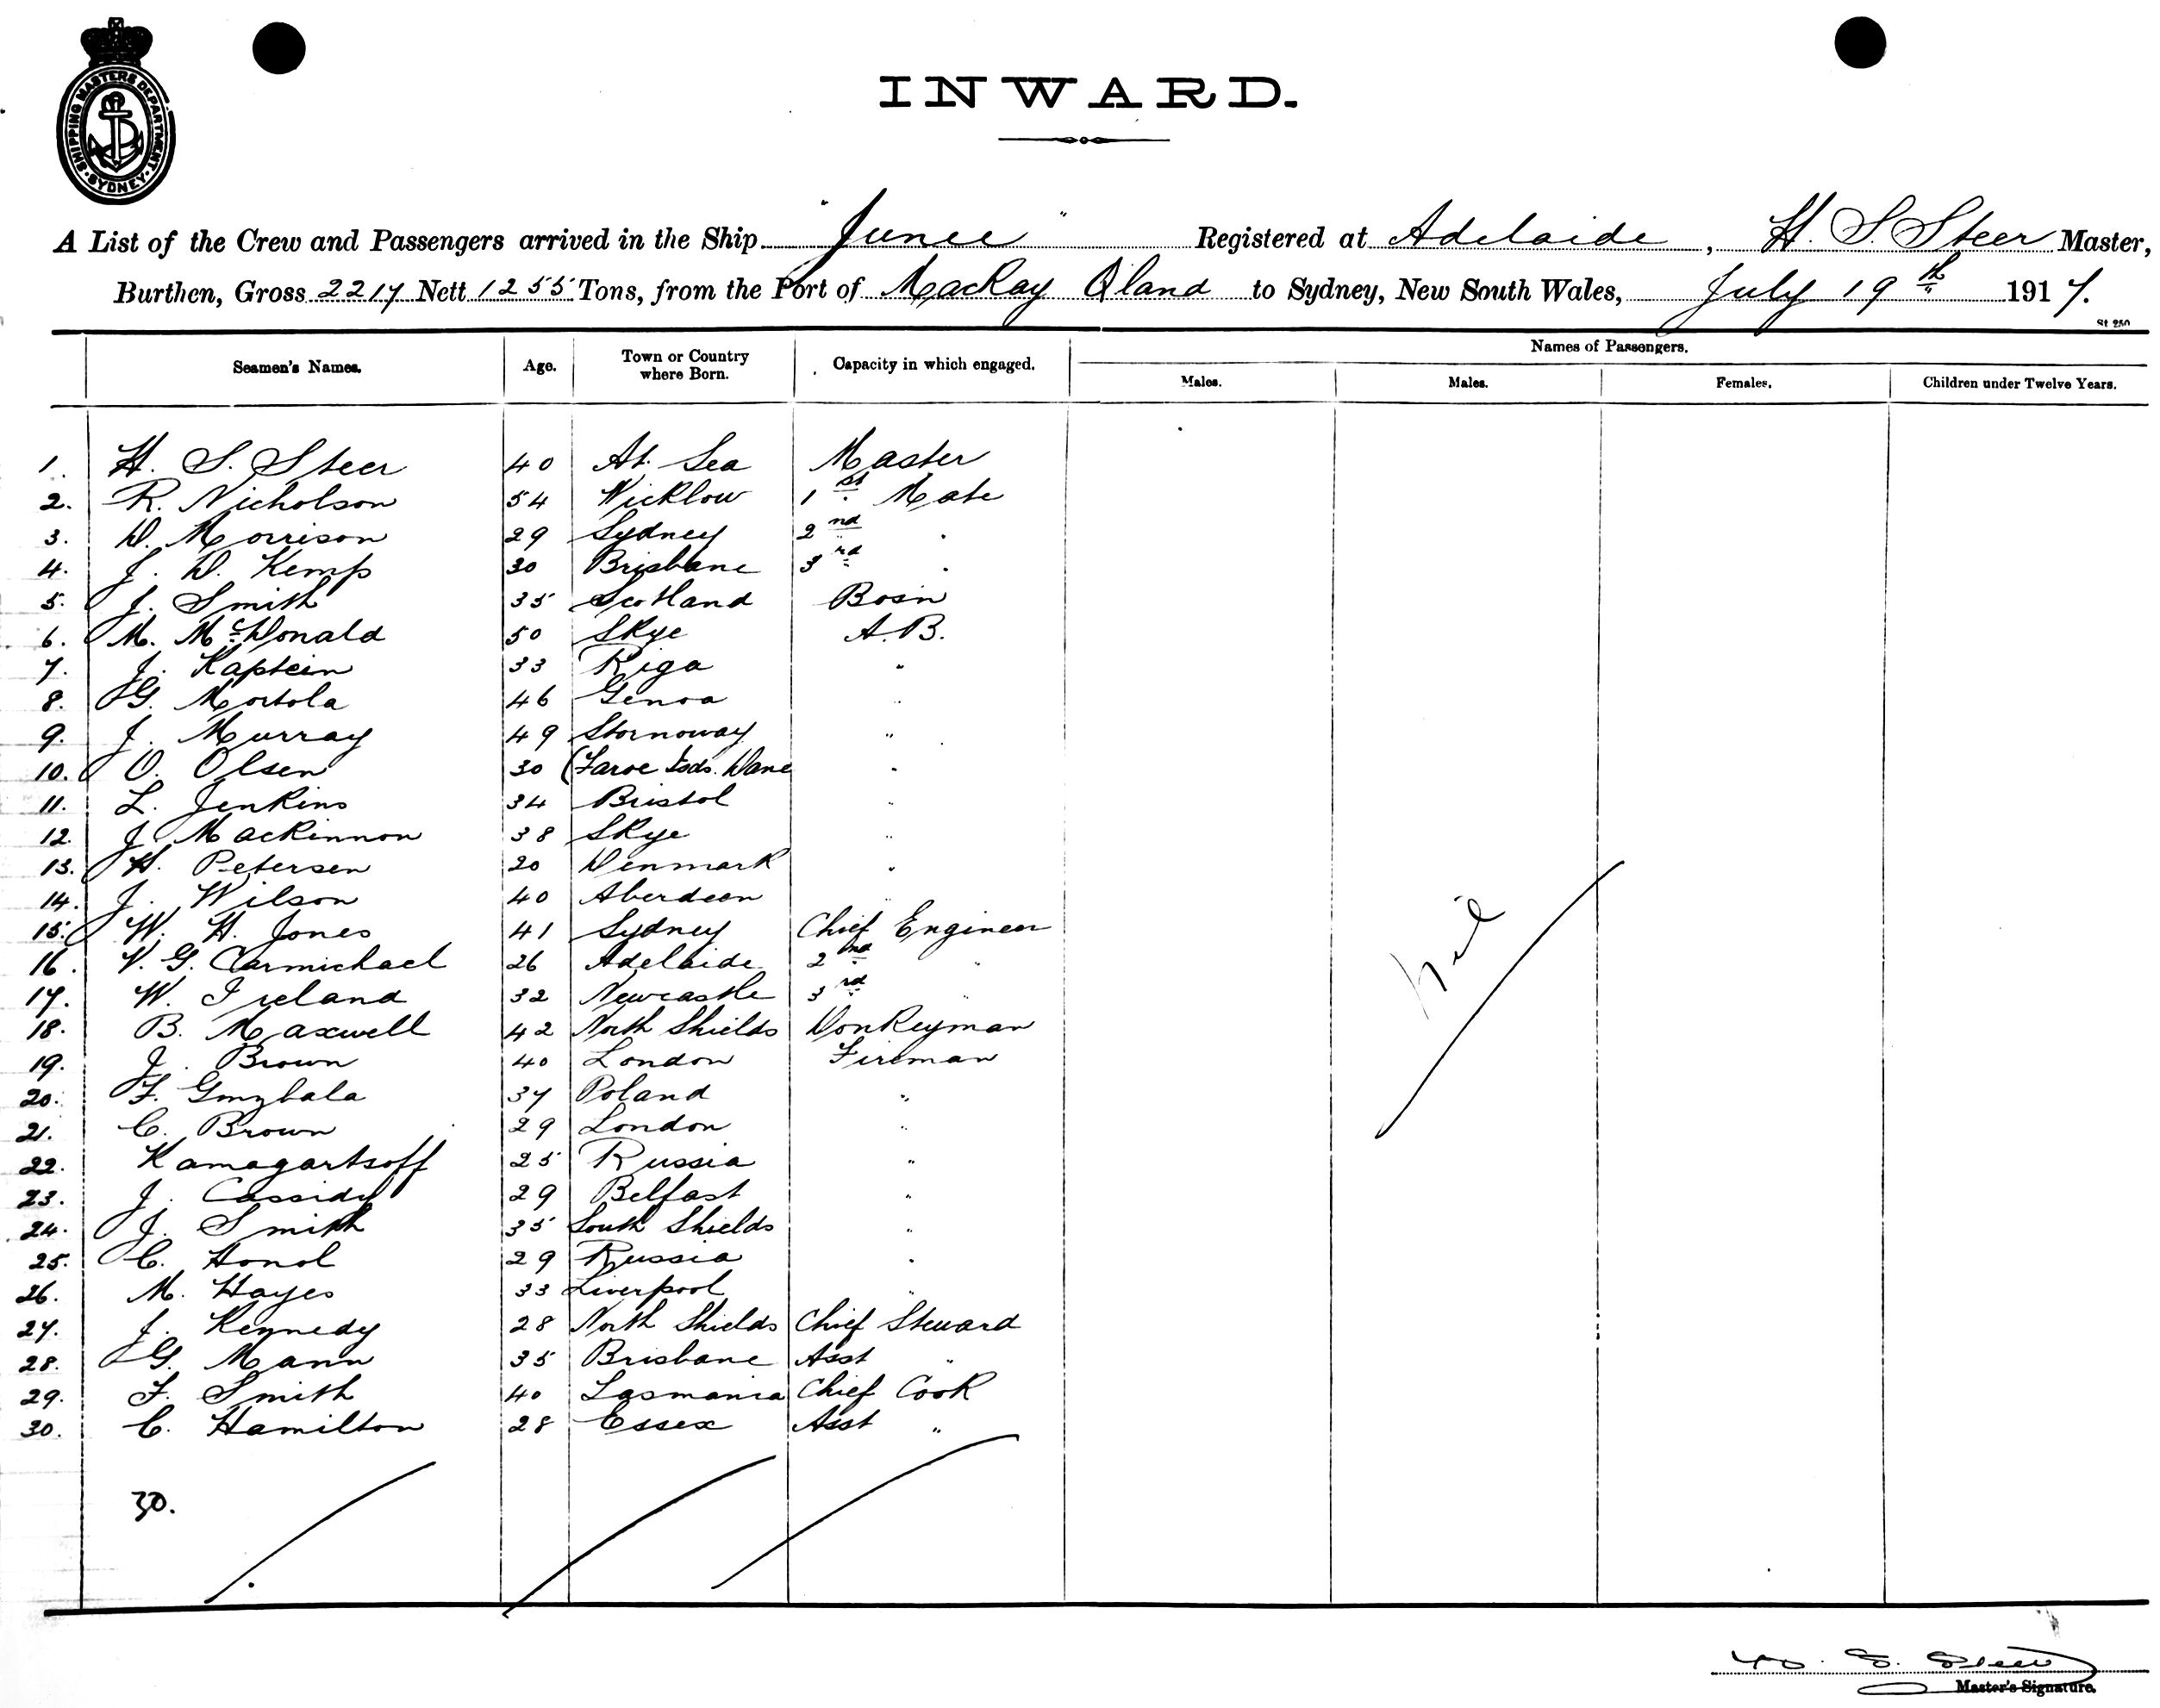 SHIPPING MASTERS DEPARTMENT. SYDNEY.
INWARD.
A List of the Crew and Passengers arrived in the Ship "Junee" Registered at Adelaide, H. S. Steer Master,
Burthen, Gross 2217 Nett 1255 Tons, from the Port of MacKay Qland to Sydney, New South Wales, July 19th 1917.
St 250
Seamen's Names. Age. Town or Country where Born. Capacity in which engaged. Names of Passengers.
Males. Males. Females. Children under Twelve Years.
1. H. S. Steer 40 At Sea Master
2. R. Nicholson 54 Wicklow 1st Mate
3. D. Morrison 29 Sydney 2nd "
4. J. D. Kemp 30 Brisbane 3rd "
5. J. Smith 35 Scotland Bosn
6. M. McDonald 50 Skye A.B.
7. J. Kaptein 33 Riga "
8. G. Mortola 46 Genoa "
9. J. Murray 49 Stornoway "
10. O. Olsen 30 (Faroe Isds. Dane "
11. L. Jenkins 34 Bristol "
12. J. Mackinnon 38 Skye "
13. H. Petersen 20 Denmark "
14. J. Wilson 40 Aberdeen "
15. W. H. Jones 41 Sydney Chief Engineer
16. V. G. Carmichael 26 Adelaide 2nd "
17. W. Ireland 32 Newcastle 3rd "
18. B. Maxwell 42 North Shields Donkeyman
19. J. Brown 40 London Fireman
20. F. Gmzbala 37 Poland "
21. C. Brown 29 London "
22. Kamagartsoff 25 Russia "
23. J. Cassidy 29 Belfast "
24. J. Smith 35 South Shields "
25. C. Honol 29 Russia "
26. M. Hayes 33 Liverpool "
27. J. Kennedy 28 North Shields Chief Steward
28. G. Mann 35 Brisbane Asst "
29. F. Smith 40 Tasmania Chief Cook
30. C. Hamilton 28 Essex Asst "
Nil
30.
H. S. Steer
Master's Signature.